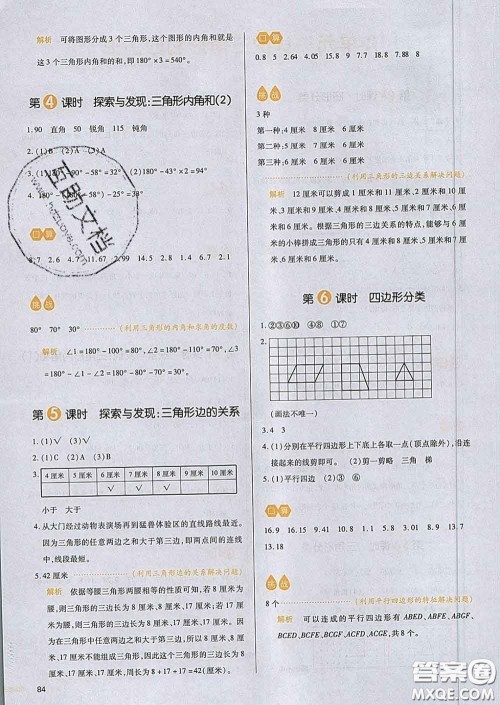 解析 可将图形分成3个三角形,这个图形的内角和就是
这3个三角形内角和的和,即180°×3=540°。
第4课时 探索与发现:三角形内角和(2)
1.90 直角 50 锐角 115 钝角
2.(1)B (2)A (3)A
180°-90°-58°)
-25°=33°
4.
180°-98°)
口算
8.7 2.96 2 4.11 7.67 2.99 1.4 1.6 2.1
挑战
80° 70° 30°
(利用三角形的内角和求角的度数)
解析 ∠1=180°-100°=80°,∠2=180°-80°-30°
=70°,∠3=180°-80°-70°=30°。
第5课时 探索与发现:三角形边的关系
1.(1)√ (2)√
2.(1)A (2)B
3. 4厘米 5厘米 6厘米 7厘米 8厘米 9厘米 10厘米
√ √ √
小于 大于
4.从大门经过动物表演场再到猛兽体验区的直线路线最近。
因为三角形的任意两边之和大于第三边,即两点间的连线
中,线段最短。
5.42厘米
(利用三角形边的关系解决问题)
解析 依据等腰三角形两腰相等的特征,如果腰为8厘
米,则三角形的三边长为8厘米,8厘米,17厘米;如果腰
为17厘米,则三角形的三边长为8厘米,17厘米,17厘
米。因为三角形任意两边之和大于第三边,所以8厘米,8
厘米,17厘米不能围成三角形,因此这个三角形的三边长
为8厘米,17厘米,17厘米,周长为8+17+17=42(厘米)。
84
口算
0.8 5 2.64 2.99 1.8 9 15 7.88 8
挑战
3种
第一种:4厘米 8厘米 6厘米
第二种:5厘米 7厘米 6厘米
第三种:6厘米 6厘米 6厘米
(利用三角形的三边关系解决问题)
解析 12厘米可以剪成1厘米和11厘米,2厘米和10
厘米,3厘米和9厘米,4厘米和8厘米,5厘米和7厘米,6
厘米和6厘米。根据三角形的三边关系的特点,能够与6厘米
的小棒拼成三角形的只有4厘米和8厘米,5厘米和7厘
米,6厘米和6厘米。
第6课时 四边形分类
1.②③⑥⑩ ④⑧ ①⑤
2.
(画法不唯一)
3.4 3
4.(1)分别在平行四边形上下底上各取一点(顶点除外),连
接起来的线剪即可。 (2)剪一剪略 三角 梯
5.(1)平行四边形 (2)③ ⑥
口算
16.9 9.15 15 29.41 0.9 8.01 13.1 13.7
13.18
挑战
8个
(利用平行四边形的特征解决问题)
解析 可以连成的平行四边形有ABED、ABFE、AFGE、
BCED、BCFE、BCGF、ACFD、ACGE,共8个。
互助文档
答案圈
MXQE.COM